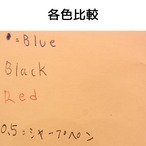 各色比較
●=Blue
Black
Red
0.5:シャープペン